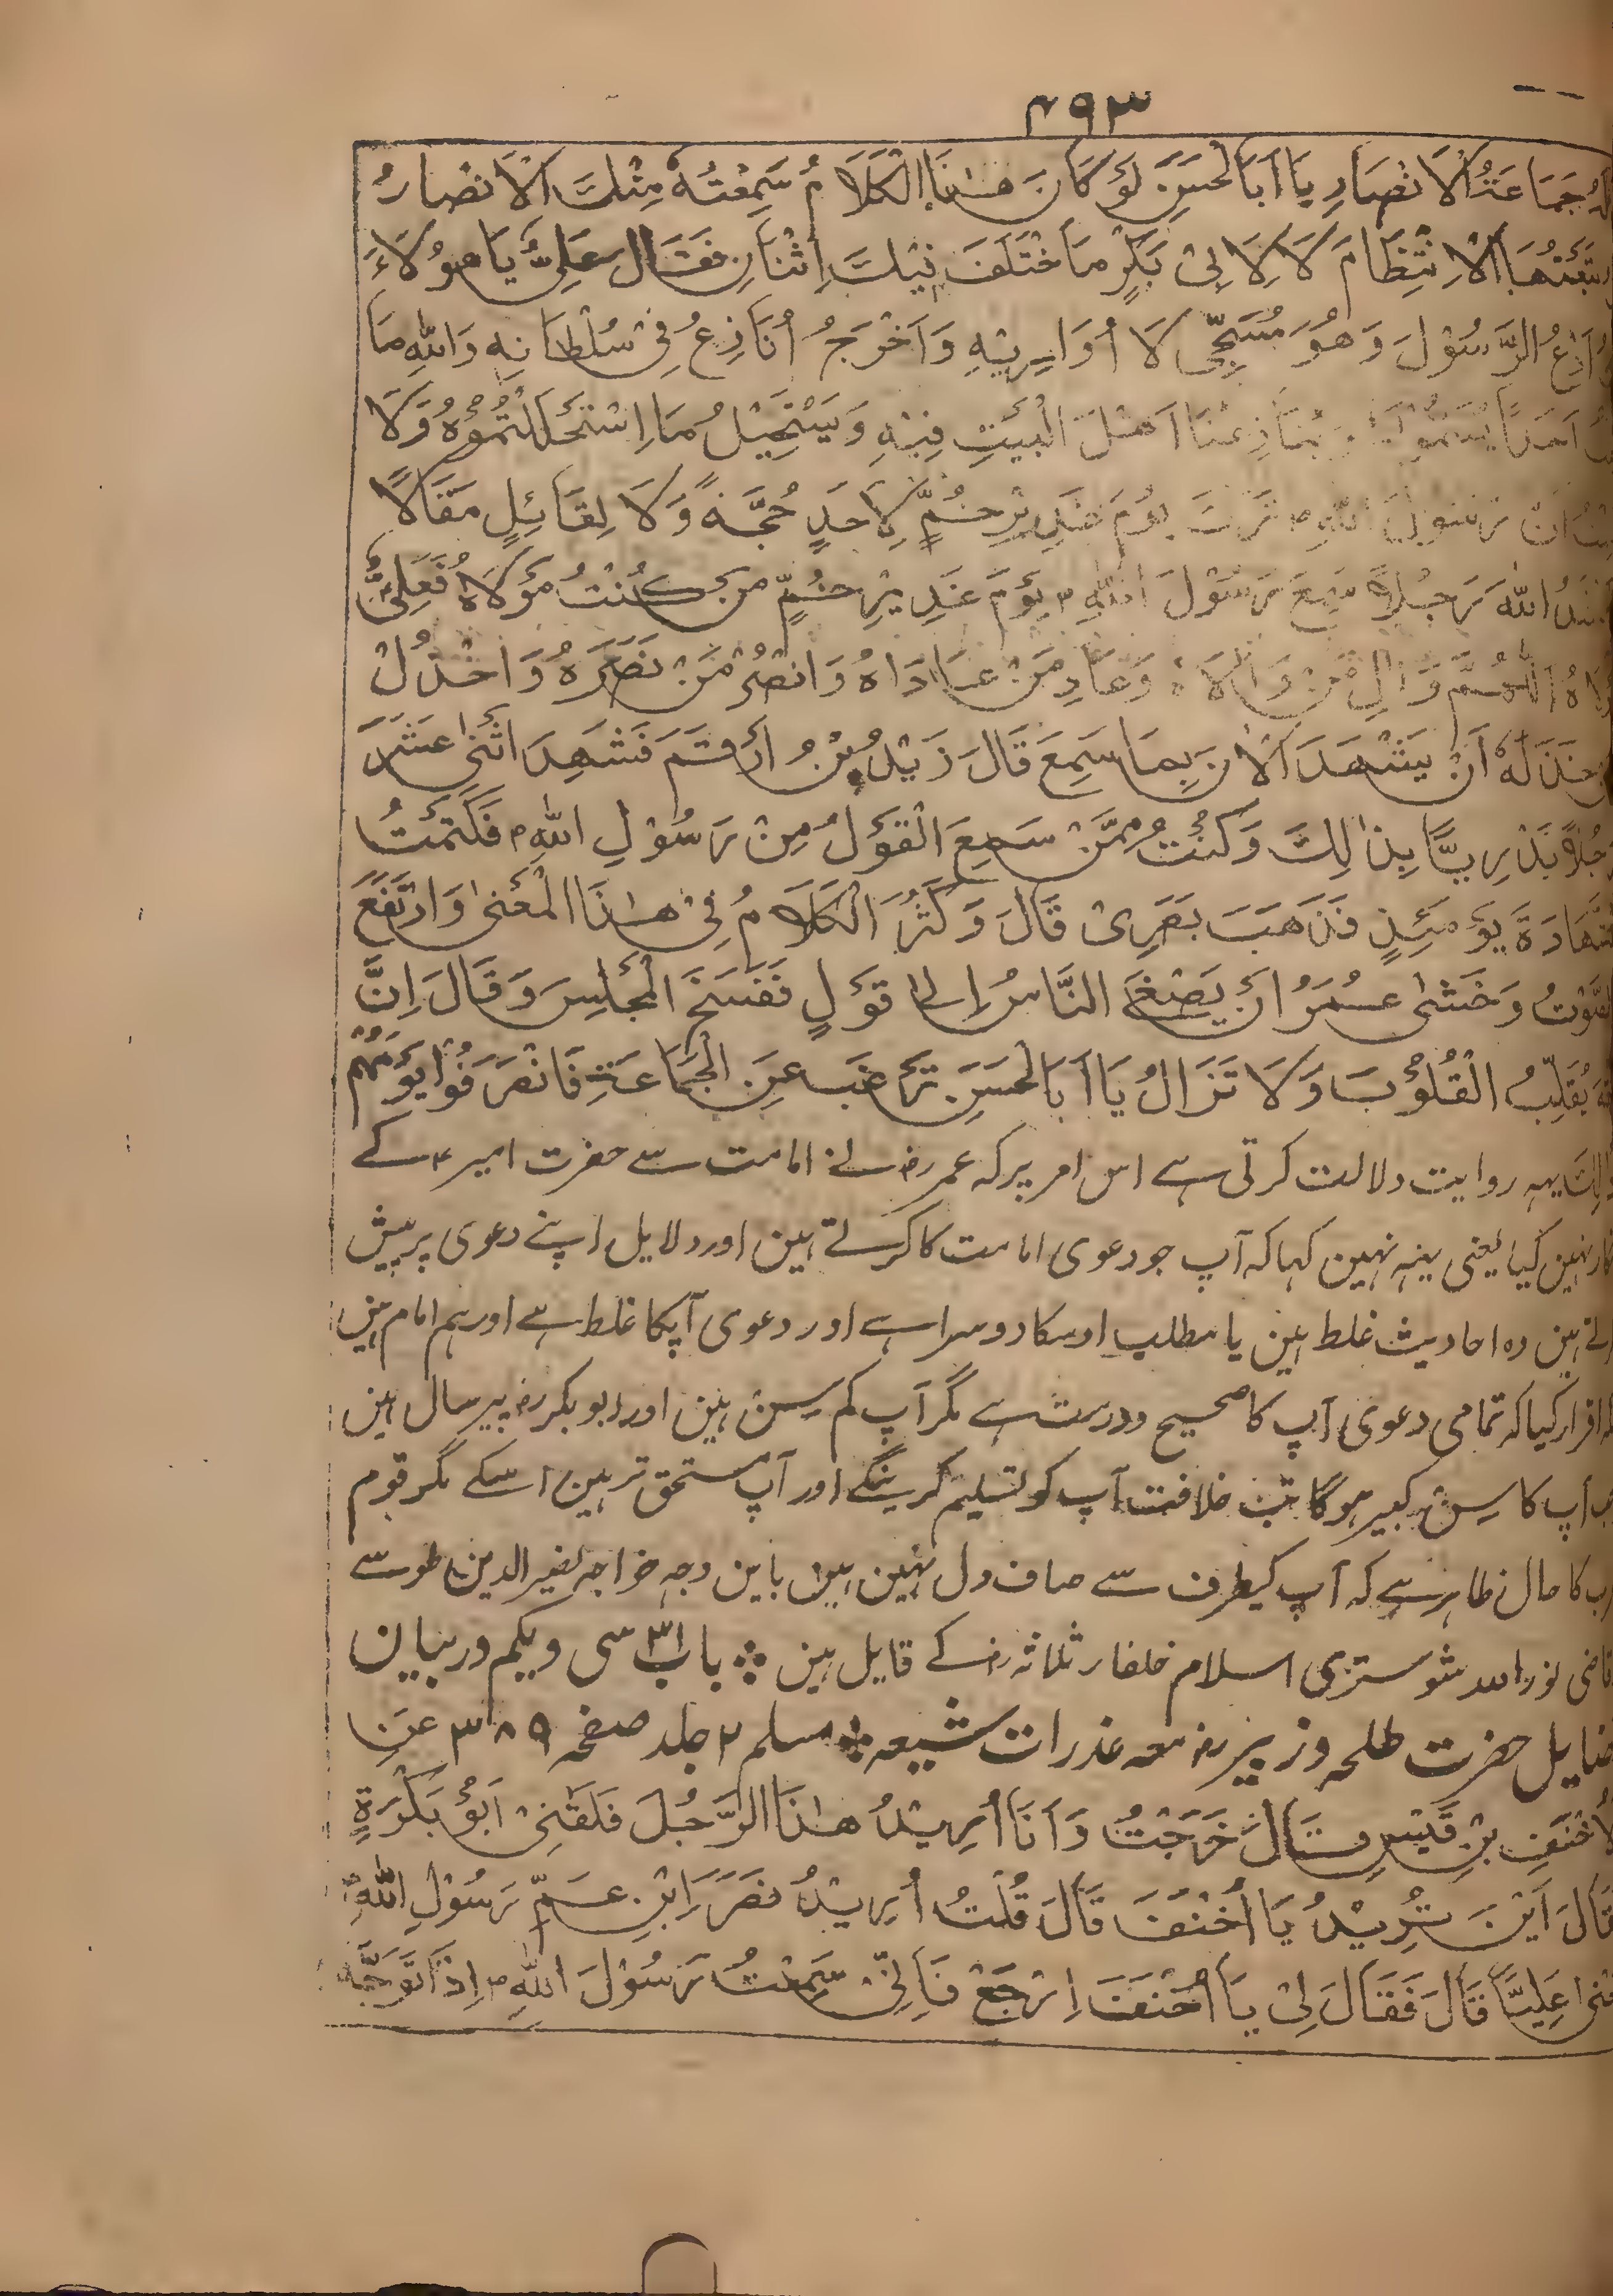 ۴۹۳
جَمَاعَةُ الْاَنْصَارِ يَا اَبَا الْحَسَنِ لَوْ كَانَ هٰذَا الْكَلَامُ سَمِعْتُهُ مِنْكَ الْاَنْصَارُ
الْاِنْتِظَامَ لَا لِاَبِىْ بَكْرٍ مَا خْتَلَفَ فِيْكَ اِثْنَانِ فَقَالَ عَلِىٌّ يَا هٰؤُلَاءِ
اَدَعُ الرَّسُوْلَ وَهُوَ مُسَجّٰى لَا اُوَارِيْهِ وَاَخْرَجُ اُنَازِعُ فِىْ سُلْطَانِهِ وَاللّٰهِ مَا
اَحَدًا يُنَازِعُنَا اَهْلَ الْبَيْتِ فِيْهِ وَيَسْتَحِيْلُ مَا اسْتَحْلَلْتُمُوْهُ وَلَا
اَنَّ رَسُوْلَ اللّٰهِ ص تَرَكَ يَوْمَ غَدِيْرِ خُمٍّ لِاَحَدٍ حُجَّةً وَّلَا لِقَائِلٍ مَقَالًا
اللّٰهَ رَجُلًا سَمِعَ رَسُوْلَ اللّٰهِ ص يَوْمَ غَدِيْرِ خُمٍّ مَنْ كُنْتُ مَوْلَاهُ فَعَلِىٌّ
اَللّٰهُمَّ وَالِ مَنْ وَالَاهُ وَعَادِ مَنْ عَادَاهُ وَانْصُرْ مَنْ نَصَرَهُ وَاخْذُلْ
خَذَلَهُ اَنْ يَشْهَدَ الْاٰنَ بِمَا سَمِعَ قَالَ زَيْدُ بْنُ اَرْقَمَ فَشَهِدَ اثْنٰى عَشَرَ
بَدْرِيًّا بِذٰلِكَ وَكُنْتُ مِمَّنْ سَمِعَ الْقَوْلُ مِنْ رَسُوْلِ اللّٰهِ ص فَكَتَمْتُ
يَوْمَئِذٍ فَذَهَبَ بَصَرِىْ قَالَ وَكَثُرَ الْكَلَامُ فِىْ هٰذَا الْمَعْنٰى وَارْتَفَعَ
الصَّوْتُ وَخَشٰى عُمَرُ اَنْ يَصْغَى النَّاسُ اِلٰى قَوْلٍ فَفَسَخَ الْمَجْلِسَ وَقَالَ اِنَّ
يُقَلِّبُ الْقُلُوْبَ وَلَا تَزَالُ يَا اَبَا الْحَسَنِ تَرْغَبَ عَنِ الْجَمَاعَةِ فَانْصَرَفُوْا يَوْمَهُمْ
یہہ روایت دلالت کرتی ہے اس امر پر کہ عمر رض نے امامت سے حضرت امیر ع کے
نہین کیا یعنی یہہ نہین کہا کہ آپ جو دعوی امامت کا کرتے ہین اور دلایل اپنے دعوی پر پیش
ہین وہ احادیث غلط ہین یا مطلب اوسکا دوسرا ہے اور دعوی آپکا غلط ہے اور ہم امام ہین
اقرار کیا کہ تمامی دعوی آپ کا صحیح و درست ہے مگر آپ کم سِن ہین اور ابوبکر رض پیر سال ہین
آپ کا سِن کبیر ہوگا تب خلافت آپ کو تسلیم کرینگے اور آپ مستحق تر ہین اسکے مگر قوم
کا حال ظاہر ہے کہ آپ کیطرف سے صاف دل نہین ہین باین وجہ خواجہ نصیر الدین طوسے
قاضی نور اللہ شوستری اسلام خلفار ثلاثہ رض کے قایل ہین ❖ باب ۳۱ سی ویکم در بیان
فضایل حضرت طلحہ وزبیر رض معہ عذرات شیعہ ❖ مسلم ۲ جلد صفحہ ۳۸۹ عَنِ
الْاَحْنَفِ بْنِ قَيْسٍ قَالَ خَرَجْتُ وَاَنَا اُرِيْدُ هٰذَا الرَّجُلَ فَلَقَنِىْ اَبُوْ بَكْرَةٍ
قَالَ اَيْنَ تُرِيْدُ يَا اَحْنَفَ قَالَ قُلْتُ اُرِيْدُ نَصَرَ ابْنِ عَمِّ رَسُوْلِ اللّٰهِ ص
عَلِيًّا قَالَ فَقَالَ لِىْ يَا اَحْنَفَ اِرْجَعْ فَاِنِّىْ سَمِعْتُ رَسُوْلَ اللّٰهِ ص اِذَا تَوَجَّهَ